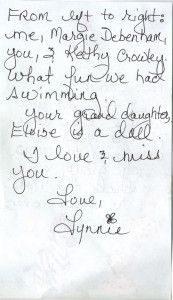 From left to right:
me, Margie Debenham,
you, & Kathy Crowley.
What fun we had
swimming.
Your grand daughter,
Eloise is a doll.
I love & miss
you.
Love,
Lynnie